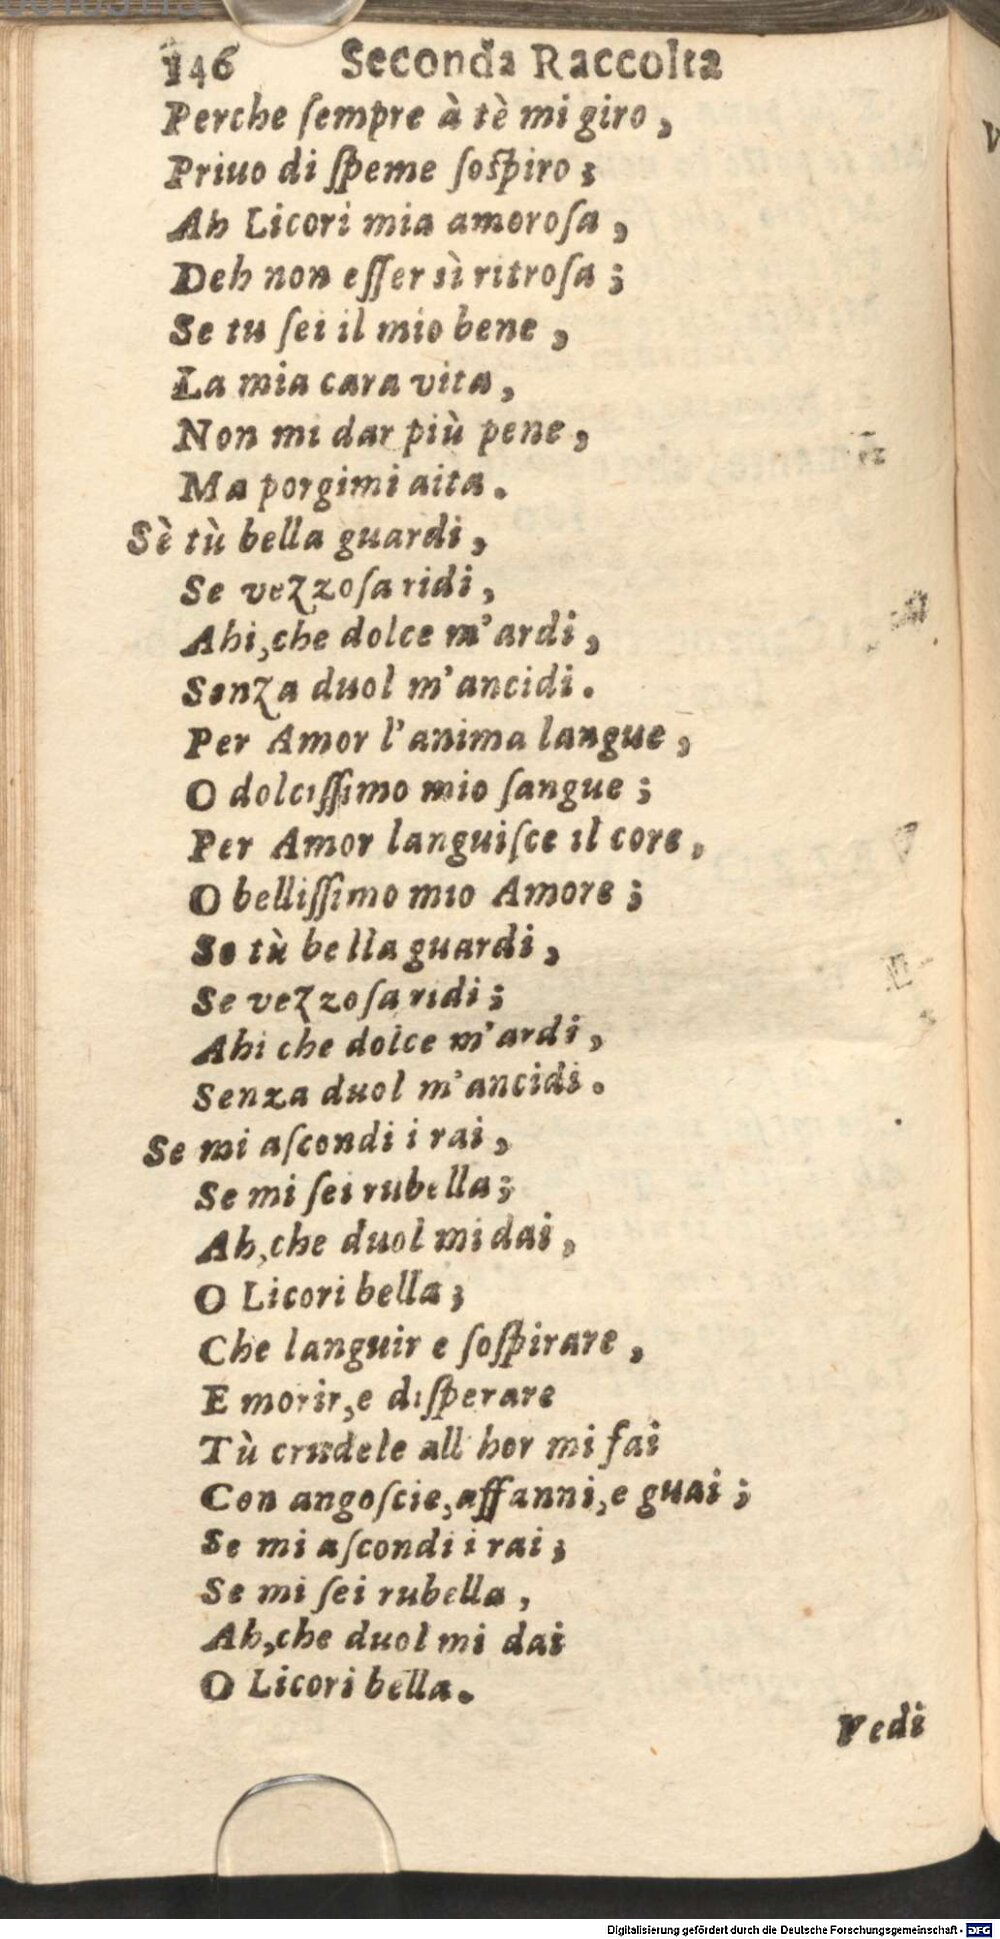 146 Seconda Raccolta
Perche ſempre à tè mi giro,
Priuo di ſpeme ſoſpiro;
Ah Licori mia amoroſa,
Deh non eſſer sì ritroſa;
Se tu ſei il mio bene,
La mia cara vita,
Non mi dar più pene,
Ma porgimi aita.
Sè tù bella guardi,
Se vezzoſa ridi,
Ahi, che dolce m'ardi,
Senza duol m'ancidi.
Per Amor l'anima langue,
O dolciſſimo mio ſangue;
Per Amor languiſce il core,
O belliſſimo mio Amore;
Se tù bella guardi,
Se vezzoſa ridi;
Ahi che dolce m'ardi,
Senza duol m'ancidi.
Se mi aſcondi i rai,
Se mi ſei rubella;
Ah, che duol mi dai,
O Licori bella;
Che languir e ſoſpirare,
E morir, e diſperare
Tù crudele all hor mi fai
Con angoſcie, affanni, e guai;
Se mi aſcondi i rai;
Se mi ſei rubella,
Ah, che duol mi dai
O Licori bella.
Vedi
Digitalisierung gefördert durch die Deutsche Forschungsgemeinschaft - DFG